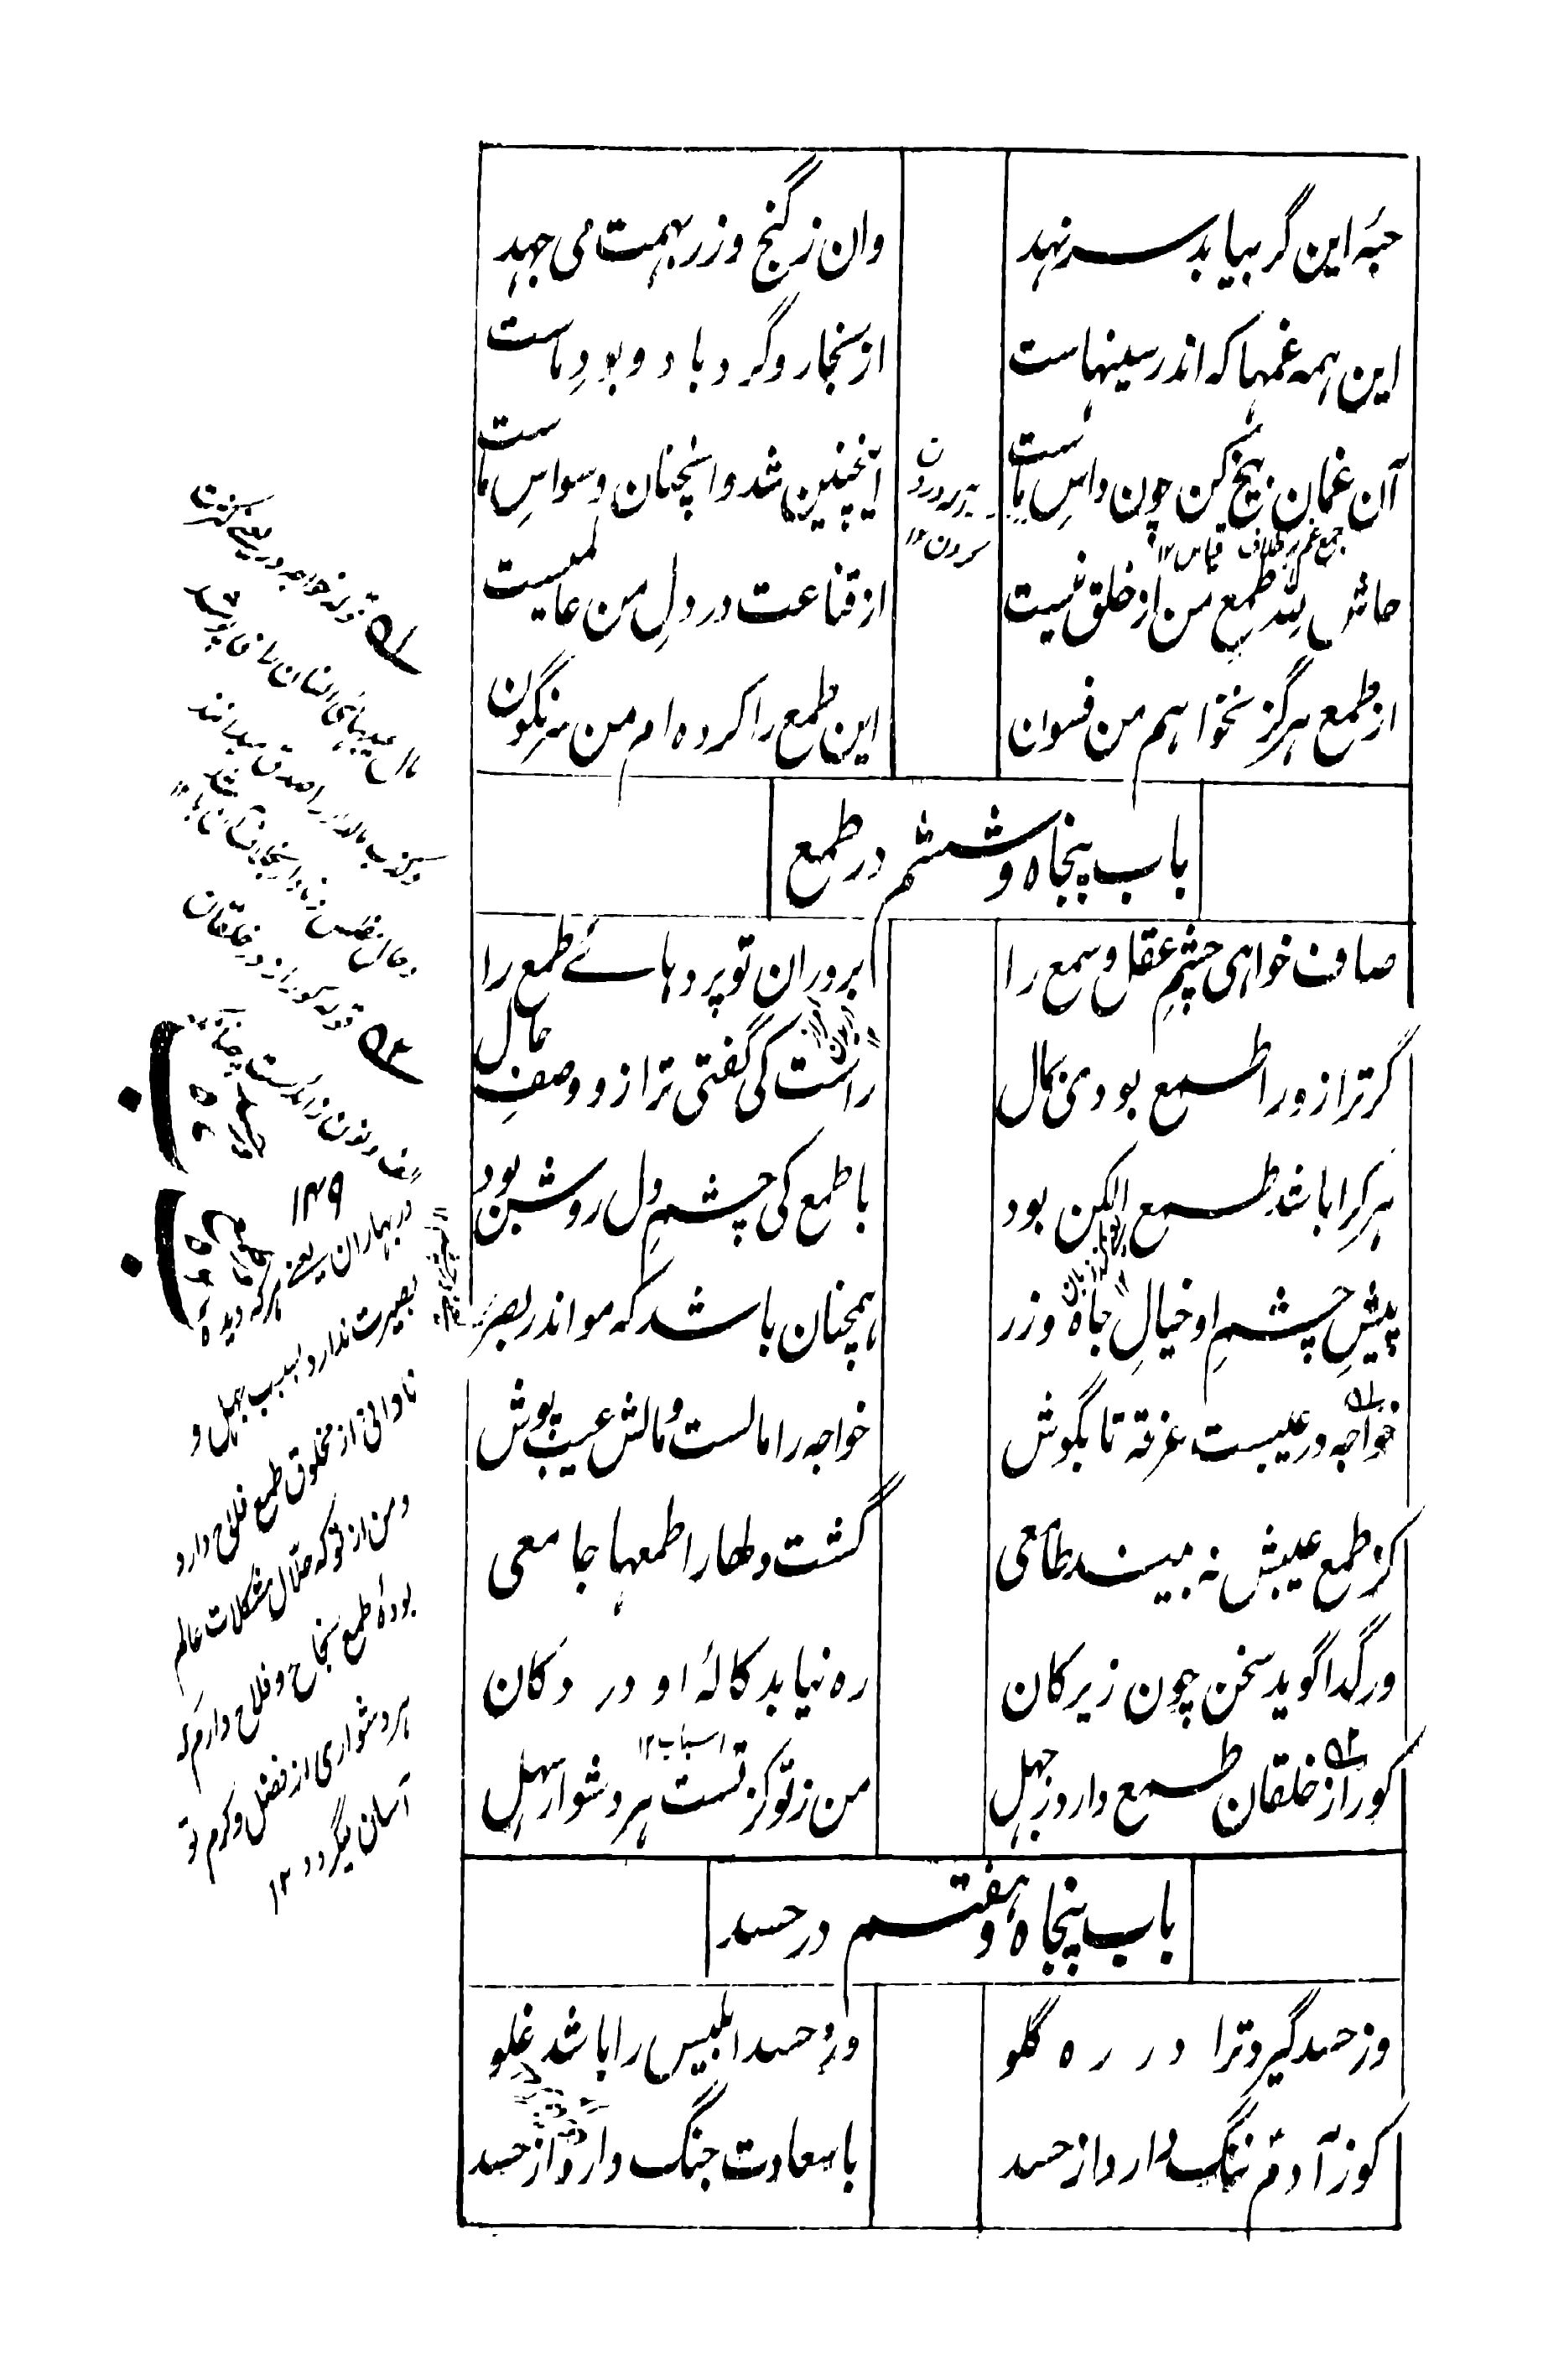 حبّه این گر بیابد سر نهد
وان ز گنج و زر بهمت می جهد
این همه غمها که اندر سینهاست
از بخار و گرد باد و بود ماست
آن غمان بیخ کن چون داسِ ماست
اینچنین شد و انچنان وسواسِ ماست
جمع غم بر خلاف قیاس ۱۲
حاش لله طمع من از خلق نیست
از قناعت در دلِ من عالمیست
از طمع هرگز نخواهم من فسون
این طمع را کرده ام من سرنگون
باب پنجاه و ششم در طمع
صاف خواهی چشمِ عقل و سمع را
بر دران تو پردهائے طمع را
گر ترازو را طمع بودی بمال
راست کی گفتی ترازو وصفِ حال
هر کرا باشد طمع الکن بود
با طمع کی چشمِ دل روشن بود
پیشِ چشمِ او خیالِ جاه و زر
همچنان باشد که مو اندر بصر
خواجه در عیبست غرقه تا بگوش
خواجه را مالست و مالش عیب پوش
کز طمع عیبش نه بیند طامعی
گشت دلها را طمعها جامعی
ور گدا گوید سخن چون زیر کان
ره نیابد کالۂ او در دکان
اسباب ۱۲
کور از خلقان طمع دارد ز جهل
من ز تو کز تست هر دشوار سهل
باب پنجاه و هفتم در حسد
وز حسد گیرد ترا در ره گلو
ور حسد ابلیس را باشد غلو
کو ز آدم ننگ دارد از حسد
با سعادت جنگ دارد از حسد
۵۱ قوله خواجه در یعنے کثرت
۵۲ قوله کور از در خلقان
۱۴۹
در بهاران یعنے هر که دیدۂ
بصیرت ندارد بسبب جهل و
نادانی از مخلوق طمع فلاح دارد
و من از تو که حلّال مشکلات عالم
بودۂ طمع نجاح و فلاح دارم که
هر دشواری از فضل و کرم تو
آسان میگردد ۱۲